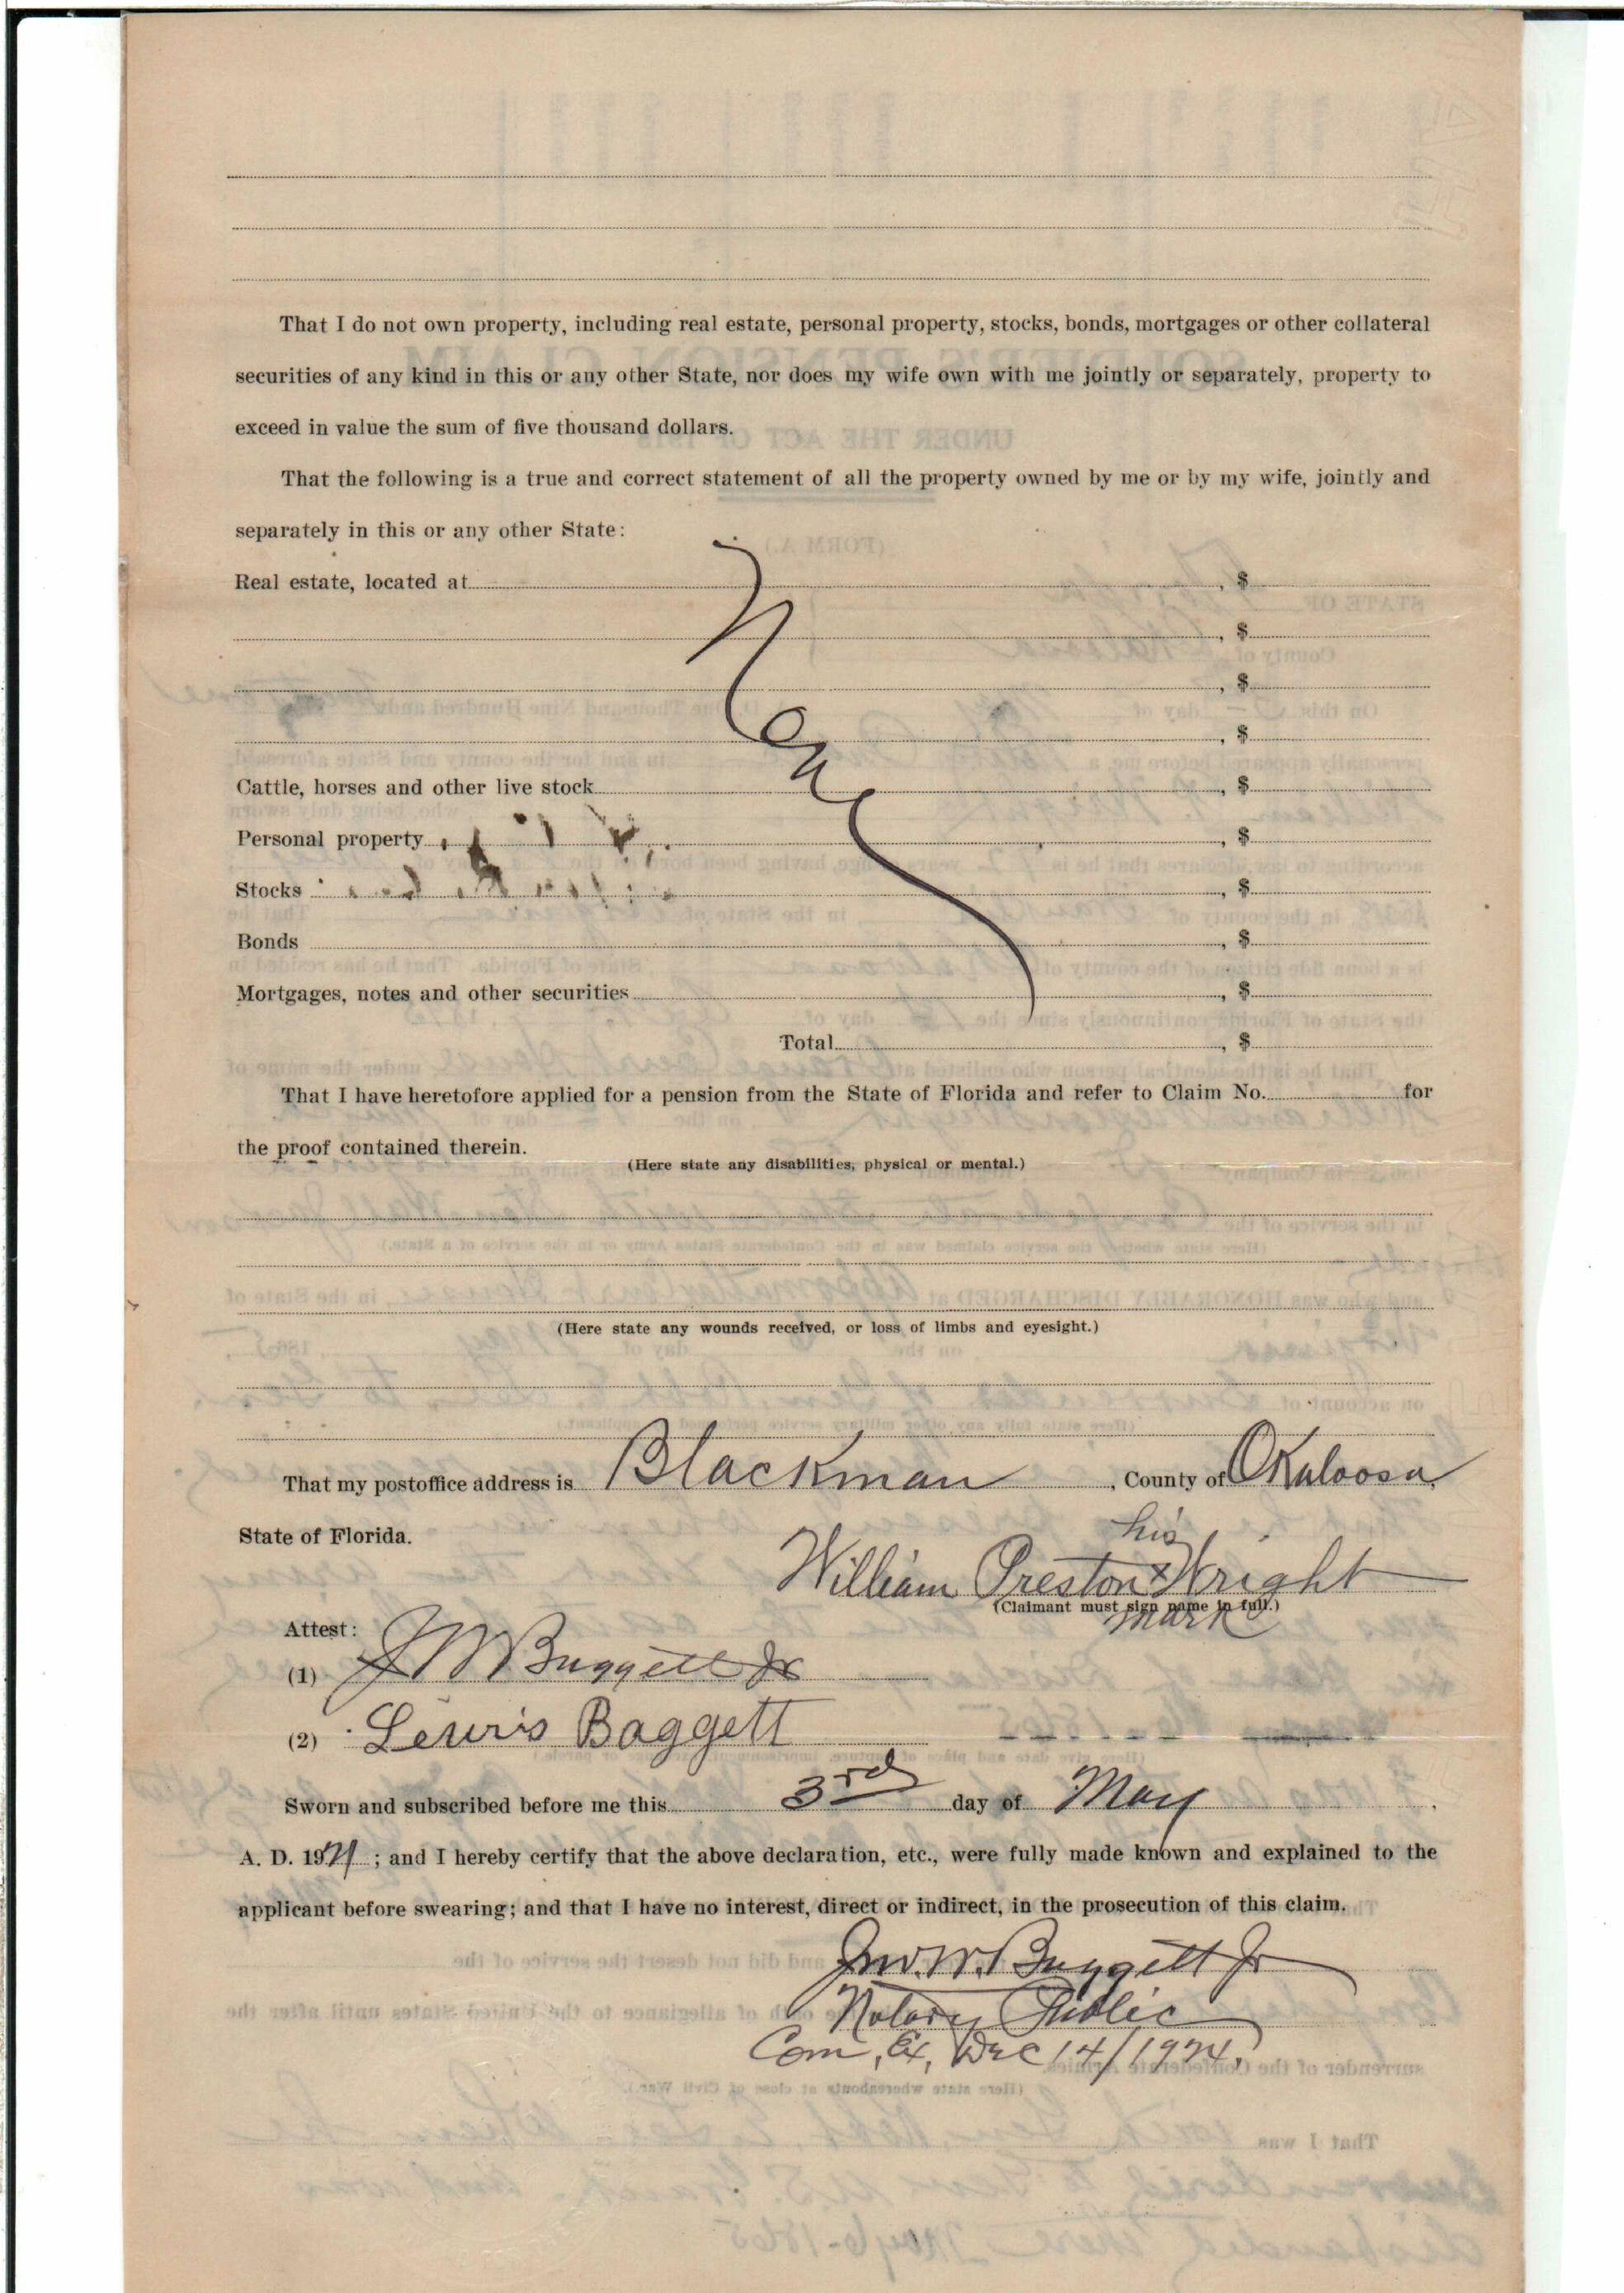 That I do not own property, including real estate, personal property, stocks, bonds, mortgages or other collateral
securities of any kind in this or any other State, nor does my wife own with me jointly or separately, property to
exceed in value the sum of five thousand dollars.
That the following is a true and correct statement of all the property owned by me or by my wife, jointly and
separately in this or any other State:
Real estate, located at , $
, $
, $
, $
Cattle, horses and other live stock , $
Personal property , $
Stocks , $
Bonds , $
Mortgages, notes and other securities , $
Total , $
That I have heretofore applied for a pension from the State of Florida and refer to Claim No. for
the proof contained therein.
(Here state any disabilities, physical or mental.)
(Here state any wounds received, or loss of limbs and eyesight.)
That my postoffice address is Blackman , County of Okaloosa,
State of Florida.
his
William Preston X Wright
(Claimant must sign name in full.)
mark
Attest:
(1) Baggett Jr
(2) Lewis Baggett
Sworn and subscribed before me this 3rd day of May ,
A. D. 1921 ; and I hereby certify that the above declaration, etc., were fully made known and explained to the
applicant before swearing; and that I have no interest, direct or indirect, in the prosecution of this claim.
Jno. W. Baggett Jr
Notary Public
Com, Ex, Dec 14/1924.